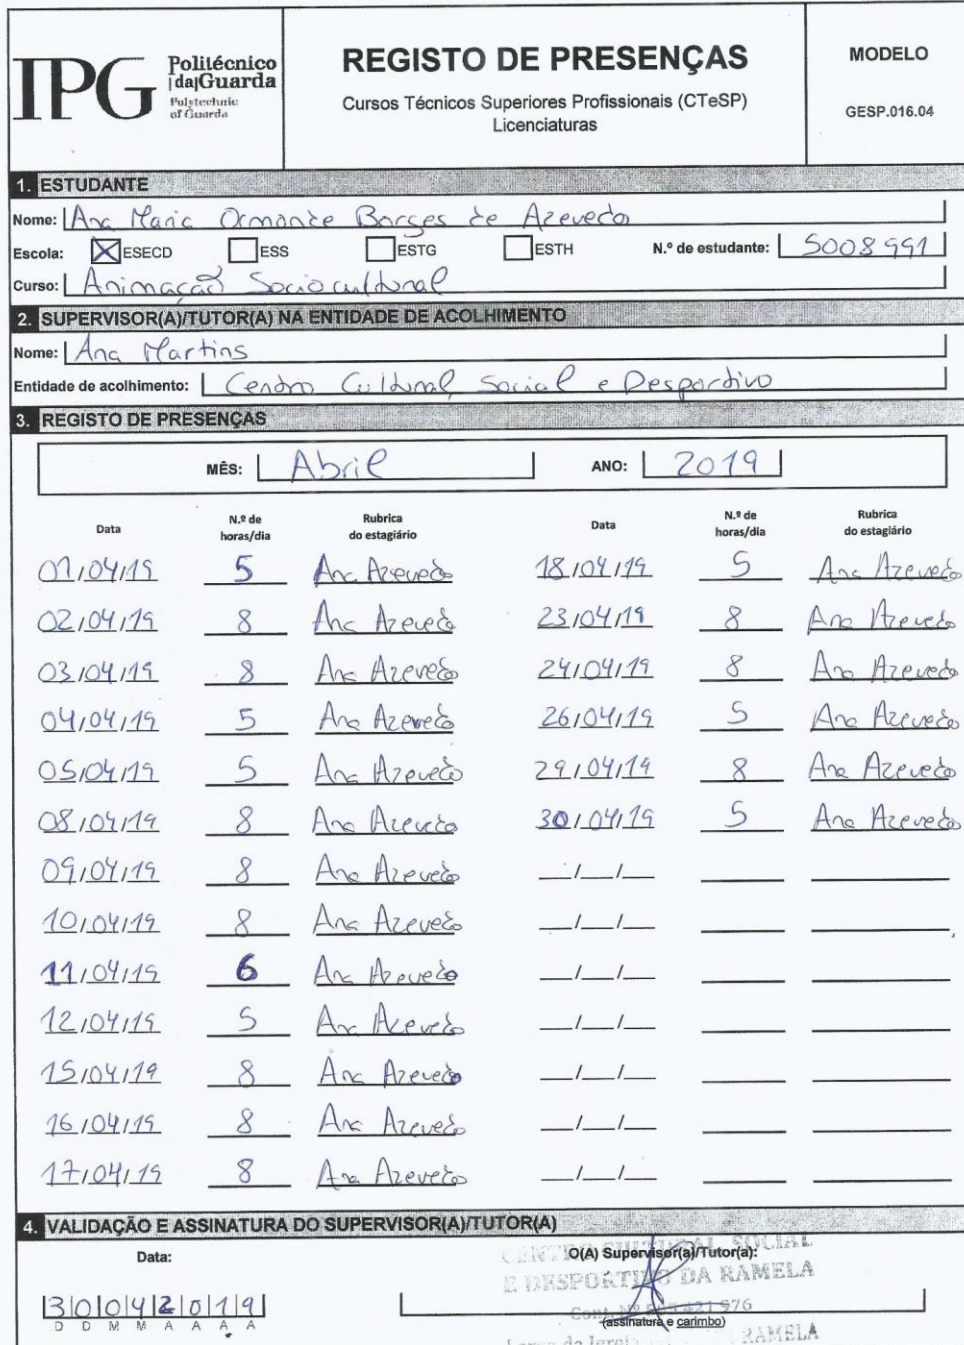 IPG Politécnico |da|Guarda Polytechnic of Guarda
REGISTO DE PRESENÇAS
Cursos Técnicos Superiores Profissionais (CTeSP)
Licenciaturas
MODELO
GESP.016.04
1. ESTUDANTE
Nome: Ana Maria Ormonde Borges de Azevedo
Escola: ☒ESECD ☐ESS ☐ESTG ☐ESTH N.º de estudante: 5008991
Curso: Animação Sociocultural
2. SUPERVISOR(A)/TUTOR(A) NA ENTIDADE DE ACOLHIMENTO
Nome: Ana Martins
Entidade de acolhimento: Centro Cultural, Social e Desportivo
3. REGISTO DE PRESENÇAS
MÊS: Abril ANO: 2019
Data N.º de horas/dia Rubrica do estagiário Data N.º de horas/dia Rubrica do estagiário
01/04/19 5 Ana Azevedo 18/04/19 5 Ana Azevedo
02/04/19 8 Ana Azevedo 23/04/19 8 Ana Azevedo
03/04/19 8 Ana Azevedo 24/04/19 8 Ana Azevedo
04/04/19 5 Ana Azevedo 26/04/19 5 Ana Azevedo
05/04/19 5 Ana Azevedo 29/04/19 8 Ana Azevedo
08/04/19 8 Ana Azevedo 30/04/19 5 Ana Azevedo
09/04/19 8 Ana Azevedo __/__/__
10/04/19 8 Ana Azevedo __/__/__
11/04/19 6 Ana Azevedo __/__/__
12/04/19 5 Ana Azevedo __/__/__
15/04/19 8 Ana Azevedo __/__/__
16/04/19 8 Ana Azevedo __/__/__
17/04/19 8 Ana Azevedo __/__/__
4. VALIDAÇÃO E ASSINATURA DO SUPERVISOR(A)/TUTOR(A)
Data: O(A) Supervisor(a)/Tutor(a):
CENTRO CULTURAL SOCIAL
E DESPORTIVO DA RAMELA
3|0|0|4|2|0|1|9
D D M M A A A A
Cont. Nº 421 976
(assinatura e carimbo)
Largo da Igreja RAMELA